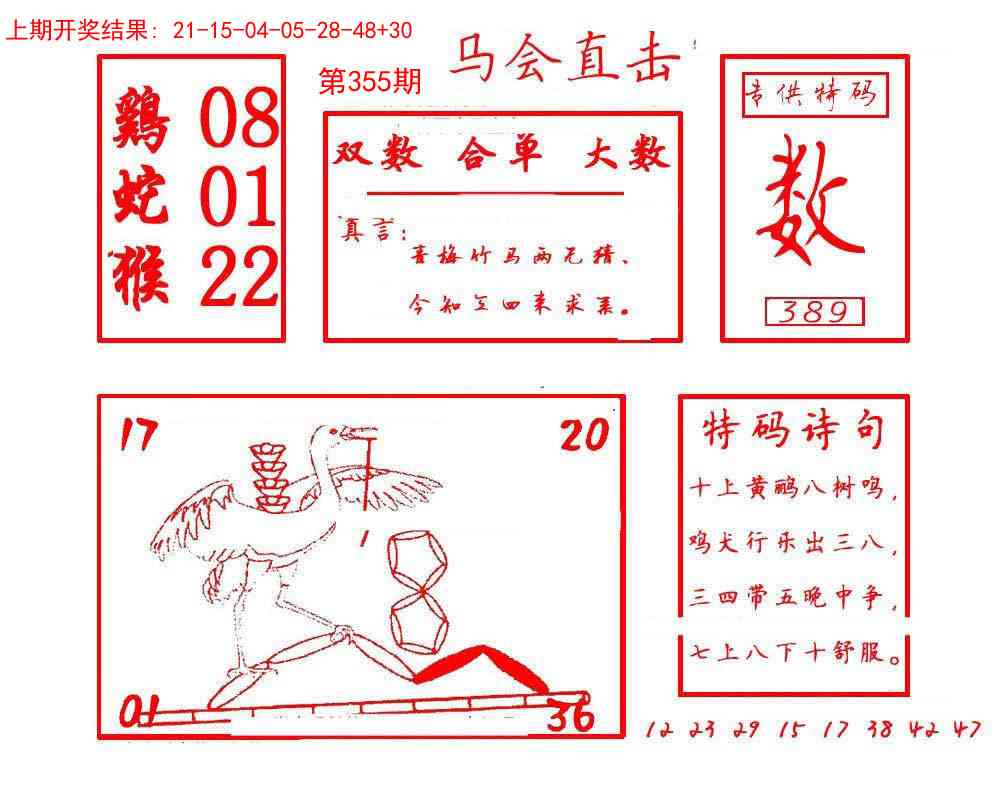 上期开奖结果: 21-15-04-05-28-48+30
第355期
马会直击
鷄 08
蛇 01
猴 22
双数 合单 大数
真言:
青梅竹马两无猜、
今知三四来求素。
专供特码
数
389
17
20
1
01
36
特码诗句
十上黄鹂八树鸣,
鸡犬行乐出三八,
三四带五晚中争,
七上八下十舒服。
12 23 29 15 17 38 42 47